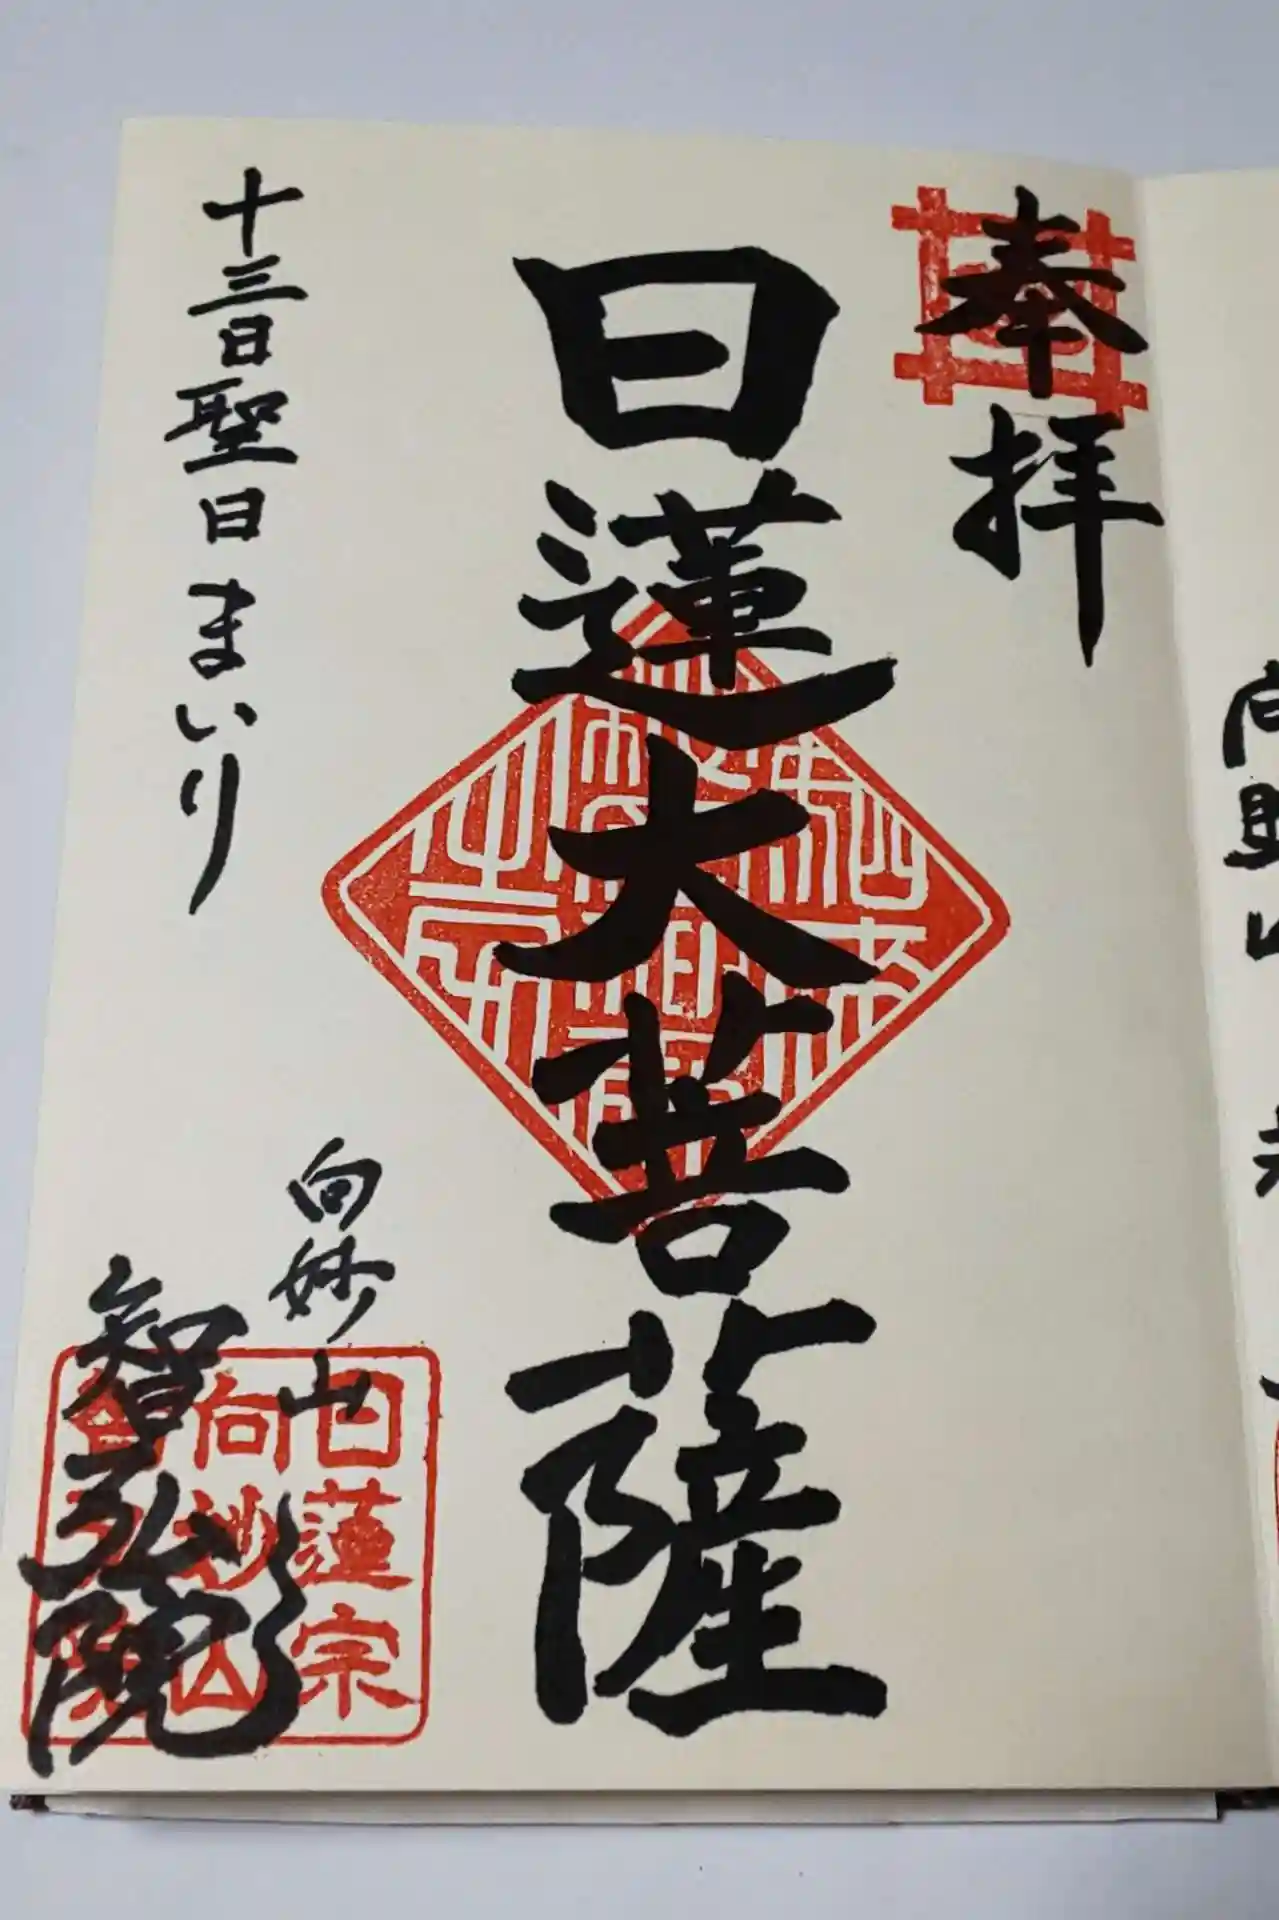 奉拝
日蓮大菩薩
十三日聖日まいり
向妙山
智弘院
日蓮宗
向妙山